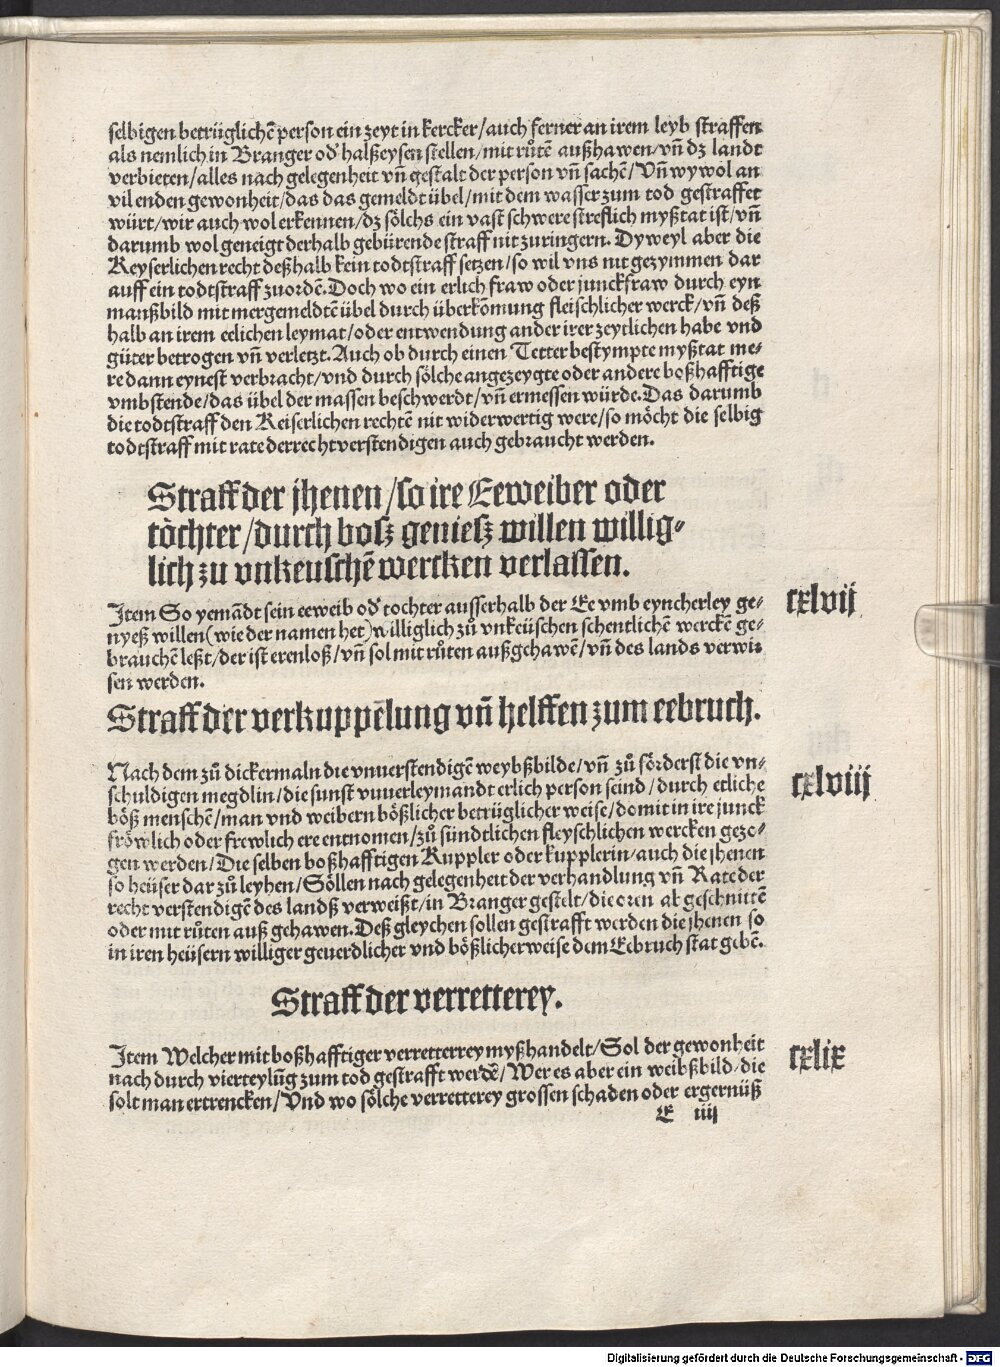 selbigen betrüglichē person ein zeyt in kercker/auch ferner an irem leyb straffen
als nemlich in Branger od̕ halßeysen stellen/mit růtē außhawen/vñ dz landt
verbieten/alles nach gelegenheit vñ gestalt der person vñ sachē/Vñ wywol an
vil enden gewonheit/das das gemeldt übel/mit dem wasser zum tod gestraffet
würt/wir auch wol erkennen/dz sölchs ein vast schwere streflich myßtat ist/vñ
darumb wol geneigt derhalb gebürende straff nit zuringern. Dyweyl aber die
Keyserlichen recht deßhalb kein todtstraff setzen/so wil vns nit gezymmen dar
auff ein todtstraff zuordē. Doch wo ein erlich fraw oder junckfraw durch eyn
manßbild mit mergemeldtē übel durch überkōmung fleischlicher werck/vñ deß
halb an irem eelichen leymat/oder entwendung ander irer zeytlichen habe vnd
güter betrogen vñ verletzt. Auch ob durch einen Tetter bestympte myßtat me⸗
re dann eynest verbracht/vnd durch sölche angezeygte oder andere boßhafftige
vmbstende/das übel der massen beschwerdt/vñ ermessen würde. Das darumb
die todtstraff den Keiserlichen rechtē nit widerwertig were/so möcht die selbig
todtstraff mit rate der rechtverstendigen auch gebraucht werden.
Straff der jhenen/so ire Eeweiber oder
töchter/durch bosz geniesz willen willig⸗
lich zu vnkeuschē wercken verlassen.
Item So yemādt sein eeweib od̕ tochter ausserhalb der Ee vmb eyncherley ge⸗
nyeß willen(wie der namen het)williglich zů vnkeüschen schentlichē werckē ge⸗
brauchē leßt/der ist erenloß/vñ sol mit růten außgehawē/vñ des lands verwi⸗
sen werden.
cxlvij
Straff der verkuppēlung vñ helffen zum eebruch.
Nach dem zů dickermaln die vnuerstendigē weybßbilde/vñ zů förderst die vn⸗
schuldigen megdlin/die sunst vnuerleymandt erlich person seind/durch etliche
böß menschē/man vnd weibern bößlicher betrüglicher weise/domit in ire junck
fröwlich oder frewlich ere entnomen/zů sündtlichen fleyschlichen wercken gezo⸗
gen werden/Die selben boßhafftigen Kuppler oder kupplerin/auch die jhenen
so heüser dar zů leyhen/Söllen nach gelegenheit der verhandlung vñ Rate der
recht verstendigē des landß verweißt/in Branger gestelt/die oren ab geschnittē
oder mit růten auß gehawen. Deß gleychen sollen gestrafft werden die jhenen so
in iren heüsern williger geuerdlicher vnd bößlicherweise dem Eebruch stat gebē.
cxlviij
Straff der verretterey.
Item Welcher mit boßhafftiger verretterrey myßhandelt/Sol der gewonheit
nach durch vierteylūg zum tod gestrafft werdē/Wer es aber ein weibßbild/die
solt man ertrencken/Vnd wo sölche verretterey grossen schaden oder ergernüß
cxlix
E iiij
Digitalisierung gefördert durch die Deutsche Forschungsgemeinschaft - DFG